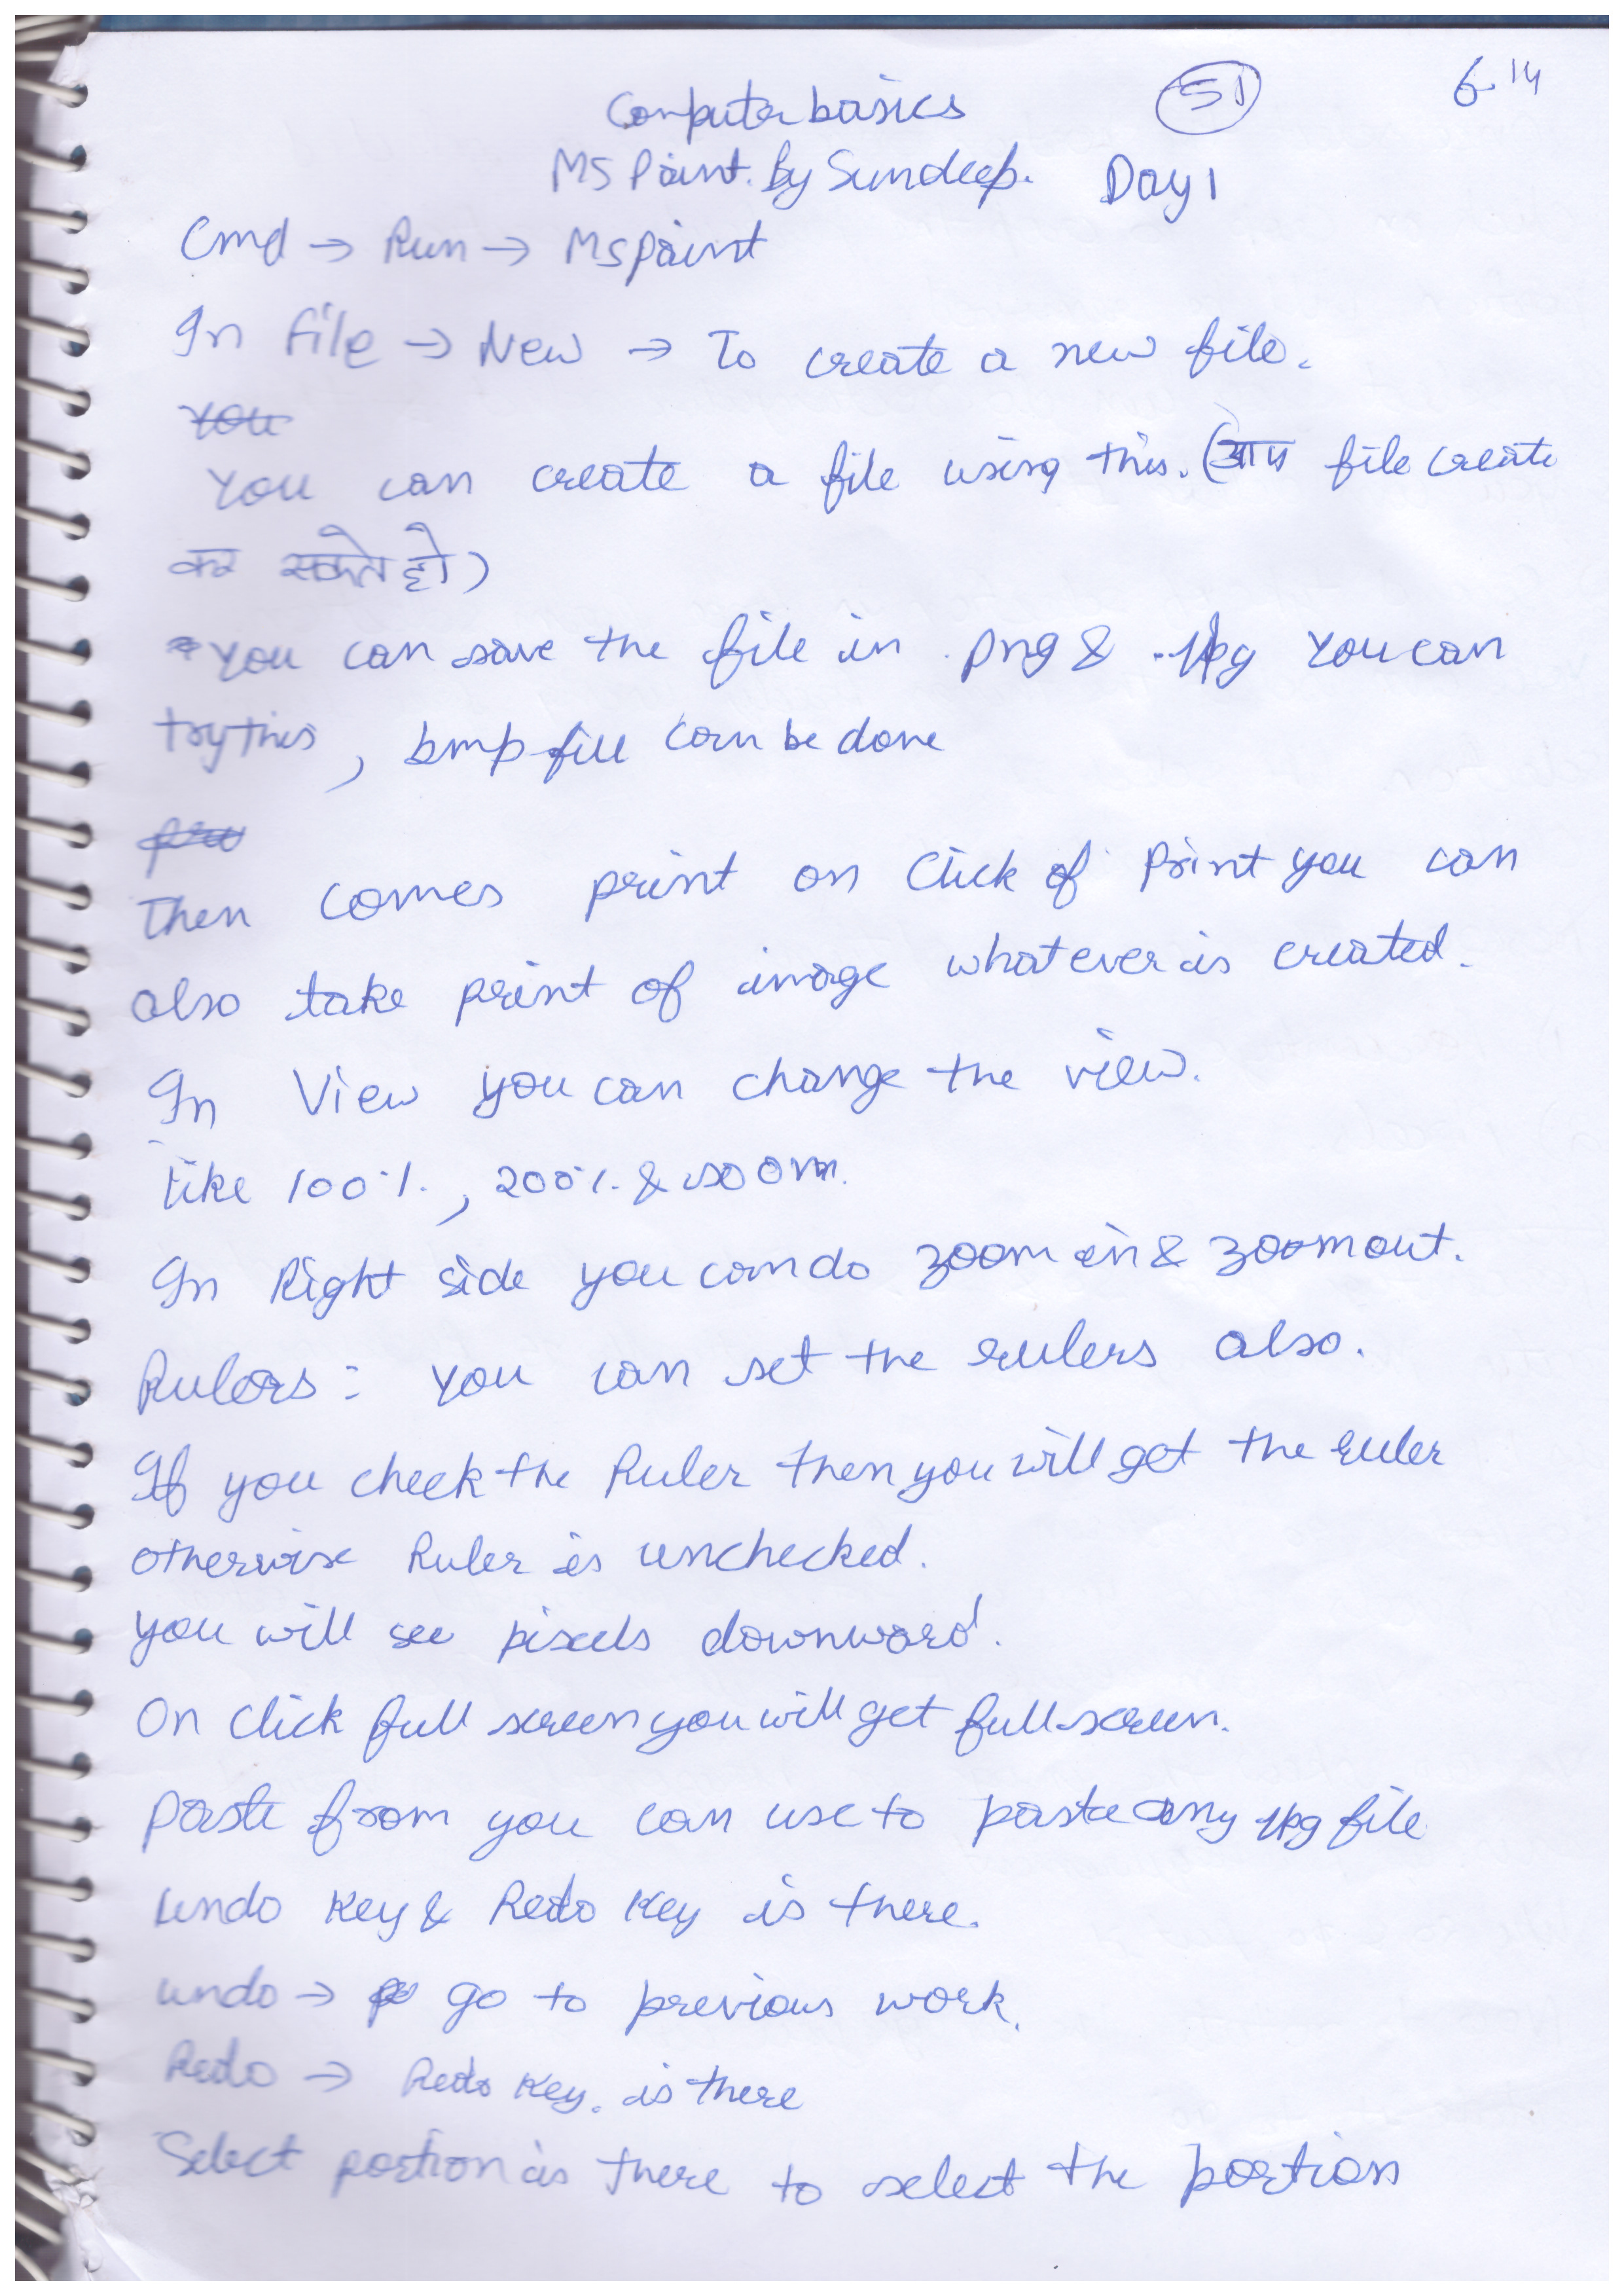 Computer basics 51 6.14
MS Paint. By Sundeep. Day 1
Cmd → Run → MSpaint
In File → New → To create a new file.
You
You can create a file using this. (आप file create
कर सकते हो)
You can save the file in .png & .jpg You can
try this, bmp file can be done
Then comes print on Click of Print you can
also take print of image whatever is created.
In View you can change the view.
like 100%, 200% & zoom.
In Right side you can do zoom in & zoom out.
Rulers: You can set the rulers also.
If you check the Ruler then you will get the ruler
otherwise Ruler is unchecked.
you will see pixels downward.
On click full screen you will get full screen.
Paste from you can use to paste any jpg file
Undo Key & Redo Key is there.
undo → go to previous work.
Redo → Redo Key. is there
Select portion is there to select the portion